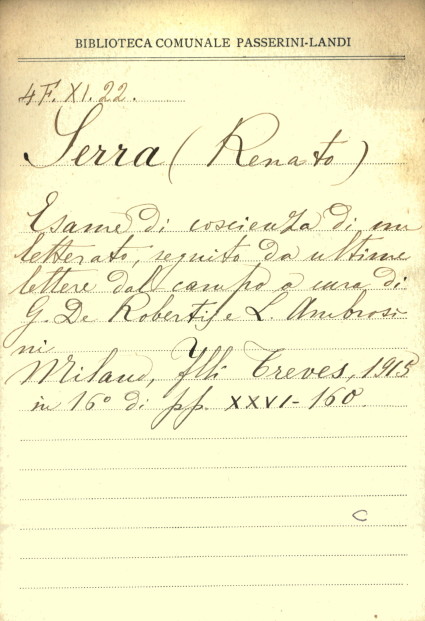 BIBLIOTECA COMUNALE PASSERINI-LANDI
4F. XI. 22.
Serra (Renato)
Esame di coscienza di un
letterato, seguito da ultime
lettere dal campo a cura di
G. De Robertis e L. Ambrosi
ni
Milano, Flli Treves, 1915
in 16° di pp. XXVI-160.